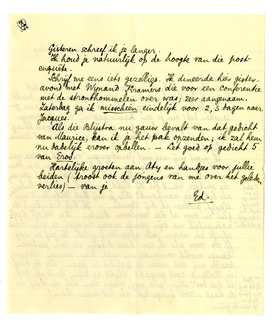 Gisteren schreef ik je langer.
Ik houd je natuurlijk op de hoogte van die post-
enquête
Schrijf me eens iets gezelligs. Ik dineerde hier gister-
avond met Wijnand Kramers die voor een conferentie
met de stronthommelen over was; zeer aangenaam.
Zaterdag ga ik misschien eindelijk voor 2, 3 dagen naar
Jacques.
Als die Blijstra nu gauw bevalt van dat gedicht
van Maurice, kan ik je het pak opzenden; ik zal hem
nu dadelijk erover opbellen. — Let goed op gedicht 5
van Eros.
Hartelijke groeten aan Aty en handjes voor jullie
beiden (troost ook de jongens van me over het
verlies) — van je
Ed.